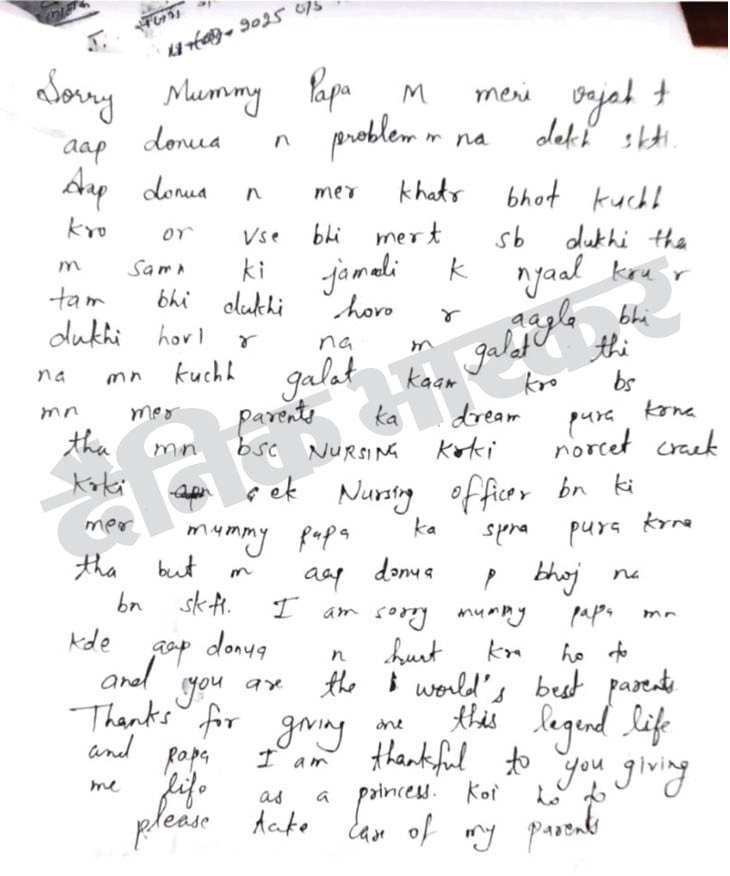 2025
Sorry Mummy Papa M meri vajah t
aap donua n problem m na dekh skti.
Aap donua n mer khatr bhot kuchh
kro or vse bhi mert sb dukhi the
m samn ki jamali k nyaal kru r
tam bhi dukhi horo r aagla bhi
dukhi horl r na m galat thi
na mn kuchh galat kaam kro bs
mn mer parents ka dream pura krna
tha mn bsc NURSING krki norcet crack
krki ek Nursing officer bn ki
mer mummy papa ka spna pura krna
tha but m aap donya p bhoj na
bn skti. I am sorry mummy papa mn
kde aap donya n hurt kra ho to
and you are the world's best parents
Thanks for giving me this legend life
and papa I am thankful to you giving
me life as a princess. Koi ho to
please take care of my parents
दैनिक भास्कर